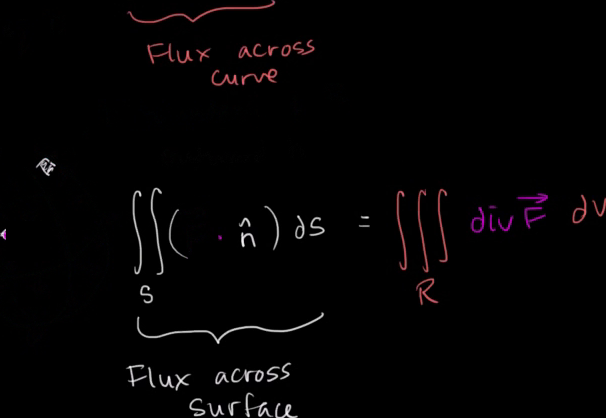 Flux across
curve
∬( · n̂ ) ds = ∭ div F⃗ dv
S R
Flux across
surface